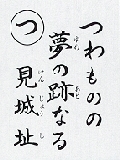 つわものの
夢の跡なる
ゆめ あと
つ
見城址
けん じょう し